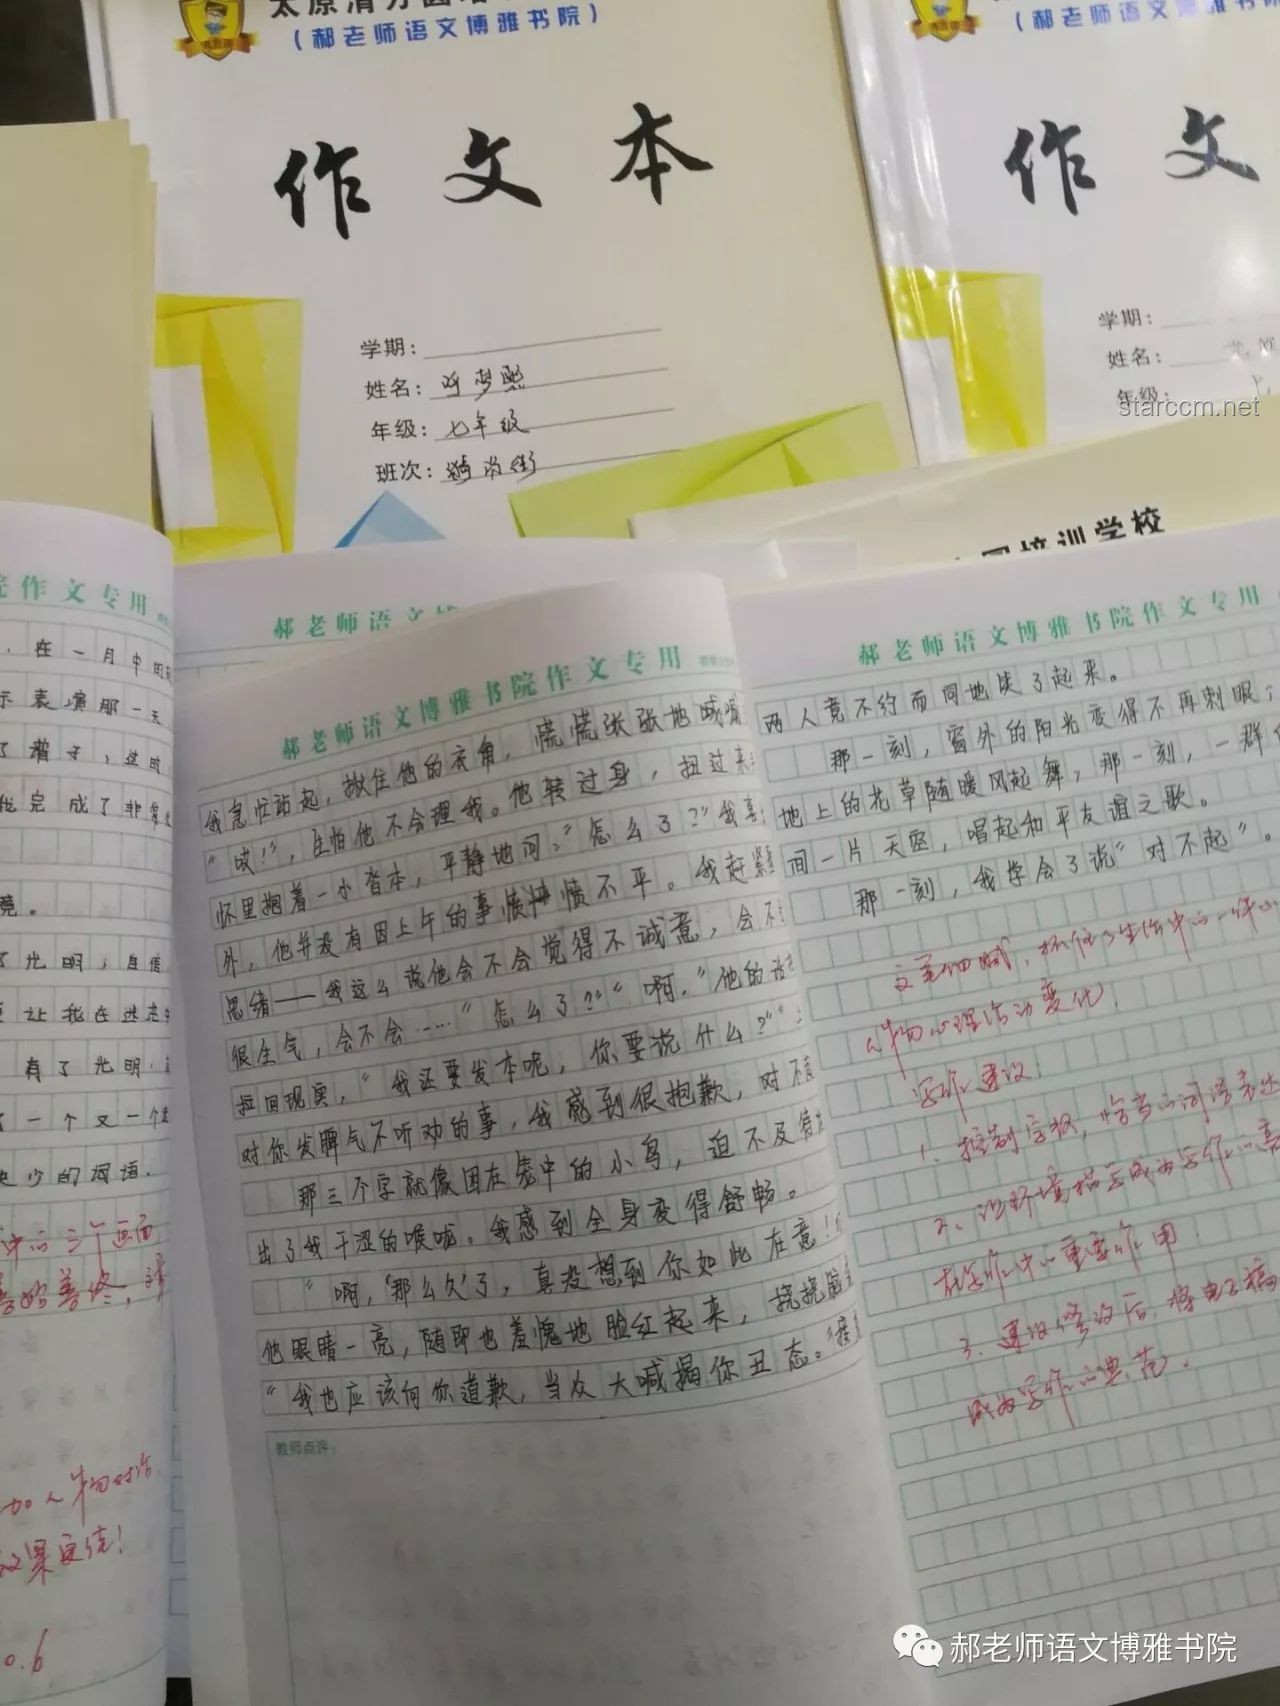 (郝老师语文博雅书院)
(郝老师语文博雅书院
作文本
作文
学期:
姓名:
年级: 七年级
班次:
学期:
姓名:
年级:
starccm.net
培训学校
院作文专用
在一月中的
示表演那一天
完成了非常
竟。
了光明;自信
让我在迷茫中
有了光明
了一个又一个
少的词语.
中的三个画面
善始善终,
加人物对话,
效果更佳!
0.6
郝老师语文
郝老师语文博雅书院作文专用
我急忙站起,揪住他的衣角,慌慌张张地喊
“哎!”,生怕他不会理我。他转过身,扭过来
怀里抱着一小沓本,平静地问:“怎么了?”我
外,他并没有因上午的事愤愤不平。我赶紧
思绪——我这么说他会不会觉得不诚意,会不
很生气,会不会……“怎么了?”“啊,”他的话
拉回现实,“我还要发本呢,你要说什么?”
对你发脾气不听劝的事,我感到很抱歉,对不
那三个字就像困在壶中的小鸟,迫不及待
出了我干涩的喉咙。我感到全身变得舒畅。
“啊,‘那么久’了,真没想到你如此在意!
他眼睛一亮,随即也羞愧地脸红起来,挠挠
“我也应该向你道歉,当众大喊揭你丑态。”
教师点评:
郝老师语文博雅书院作文专用
两人竟不约而同地笑了起来。
那一刻,窗外的阳光变得不再刺眼;
地上的花草随暖风起舞;那一刻,一群
间一片天空,唱起和平友谊之歌。
那一刻,我学会了说“对不起”。
文笔细腻,抓住了生活中的一件小
人物心理活动变化!
写作建议:
1、控制字数,恰当的词语表达
2、让环境描写成为写作的亮
在写作中的重要作用!
3、建议修改后,将电子稿
成为写作的典范.
郝老师语文博雅书院